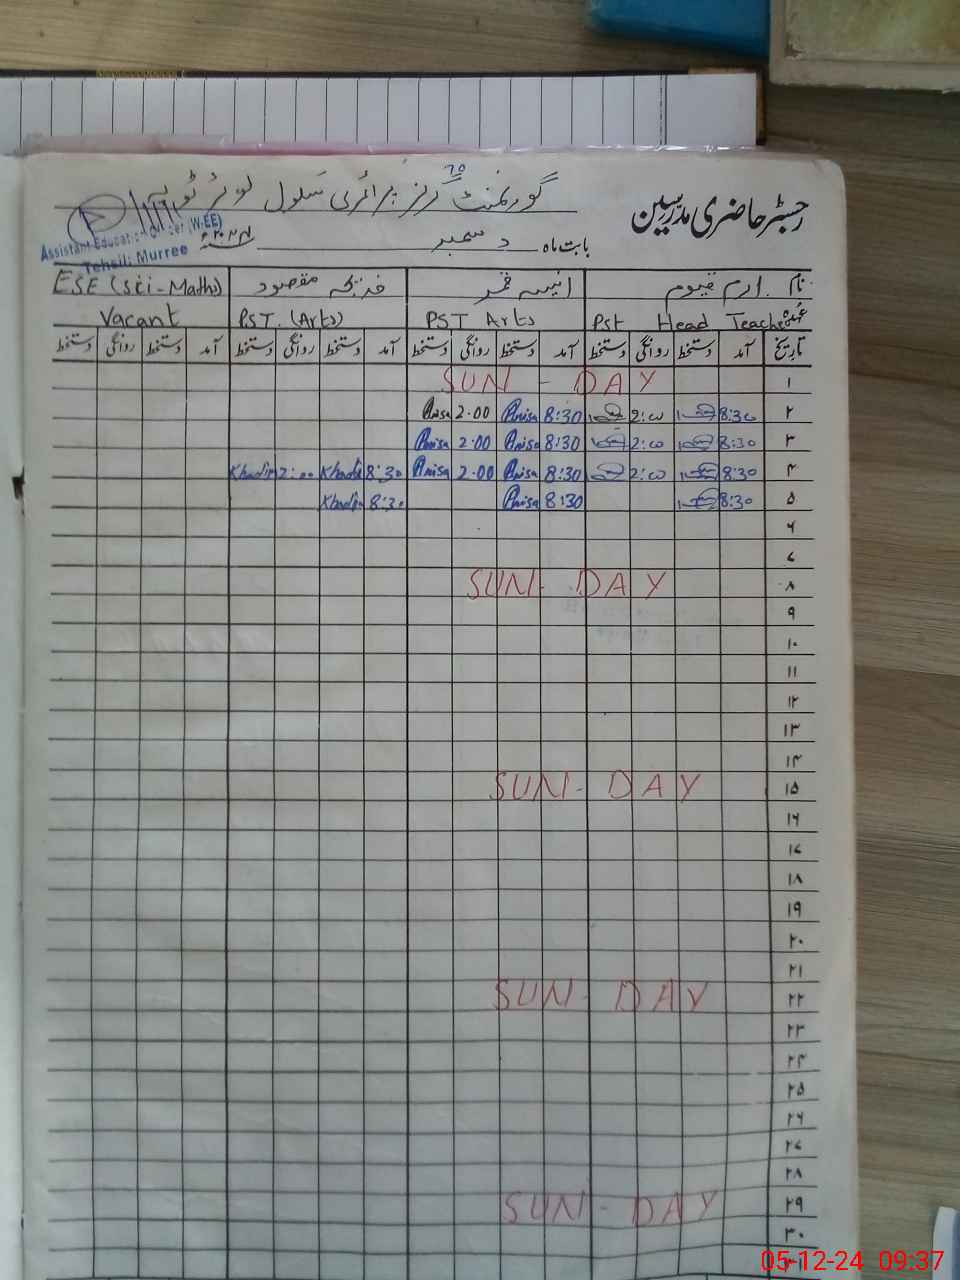 رجسٹر حاضری مدرسین
گورنمنٹ گرلز پرائمری سکول لوئر ٹوپہ
بابت ماہ دسمبر ۲۰۲۴ء
Assistant Education Officer (W-EE)
Tehsil: Murree
نام ارم قیوم انیسہ قمر خدیجہ مقصود ESE (Sci-Math)
عہدہ Pst Head Teacher PST Arts PST. (Arts) Vacant
تاریخ آمد دستخط روانگی دستخط آمد دستخط روانگی دستخط آمد دستخط روانگی دستخط آمد دستخط روانگی دستخط
۱ SUN - DAY
۲ 8:30 2:00 8:30 Anisa 2.00 Anisa
۳ 8:30 2:00 8:30 Anisa 2.00 Anisa
۴ 8:30 2:00 8:30 Anisa 2.00 Anisa 8:30 Khadija 2:00 Khadija
۵ 8:30 8:30 Anisa 8:30 Khadija
۶
۷
۸ SUN - DAY
۹
۱۰
۱۱
۱۲
۱۳
۱۴
۱۵ SUN - DAY
۱۶
۱۷
۱۸
۱۹
۲۰
۲۱
۲۲ SUN - DAY
۲۳
۲۴
۲۵
۲۶
۲۷
۲۸
۲۹ SUN - DAY
۳۰
۳۱
05-12-24 09:37